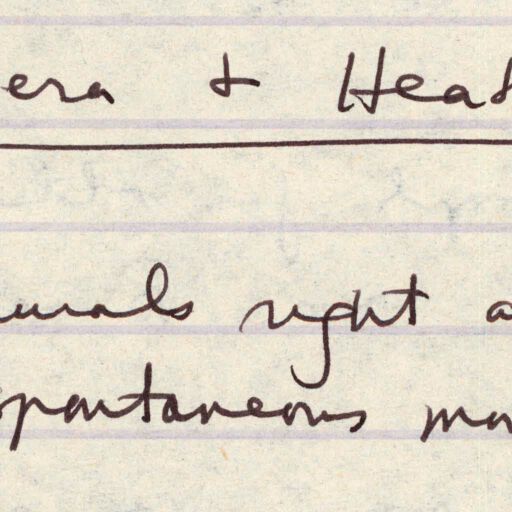 era + Head
urals right a
spontaneous mo